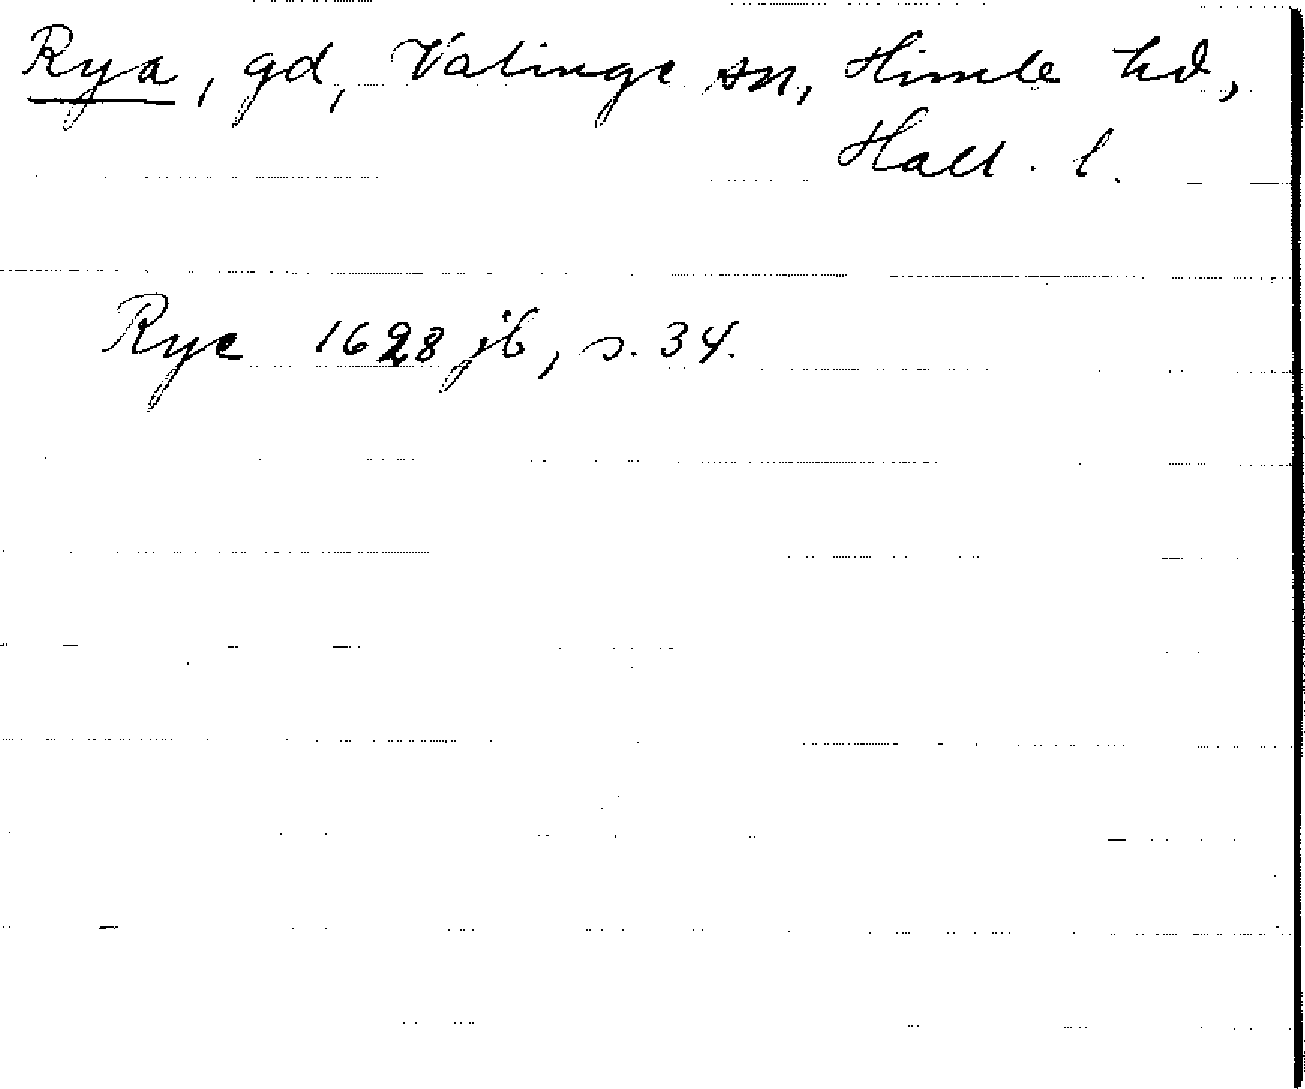 Rya, gd, Valinge sn, Himle hd,
Hall. l.
Rye 1628 jb, s. 34.